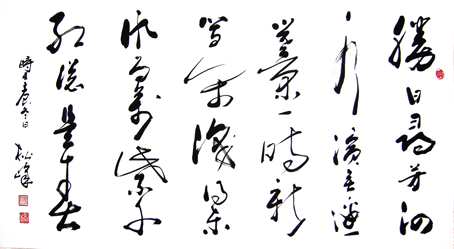 勝日尋芳泗
水濱無邊
光景一時新
等閒識得東
風面萬紫千
紅總是春
時壬辰冬日 松峰